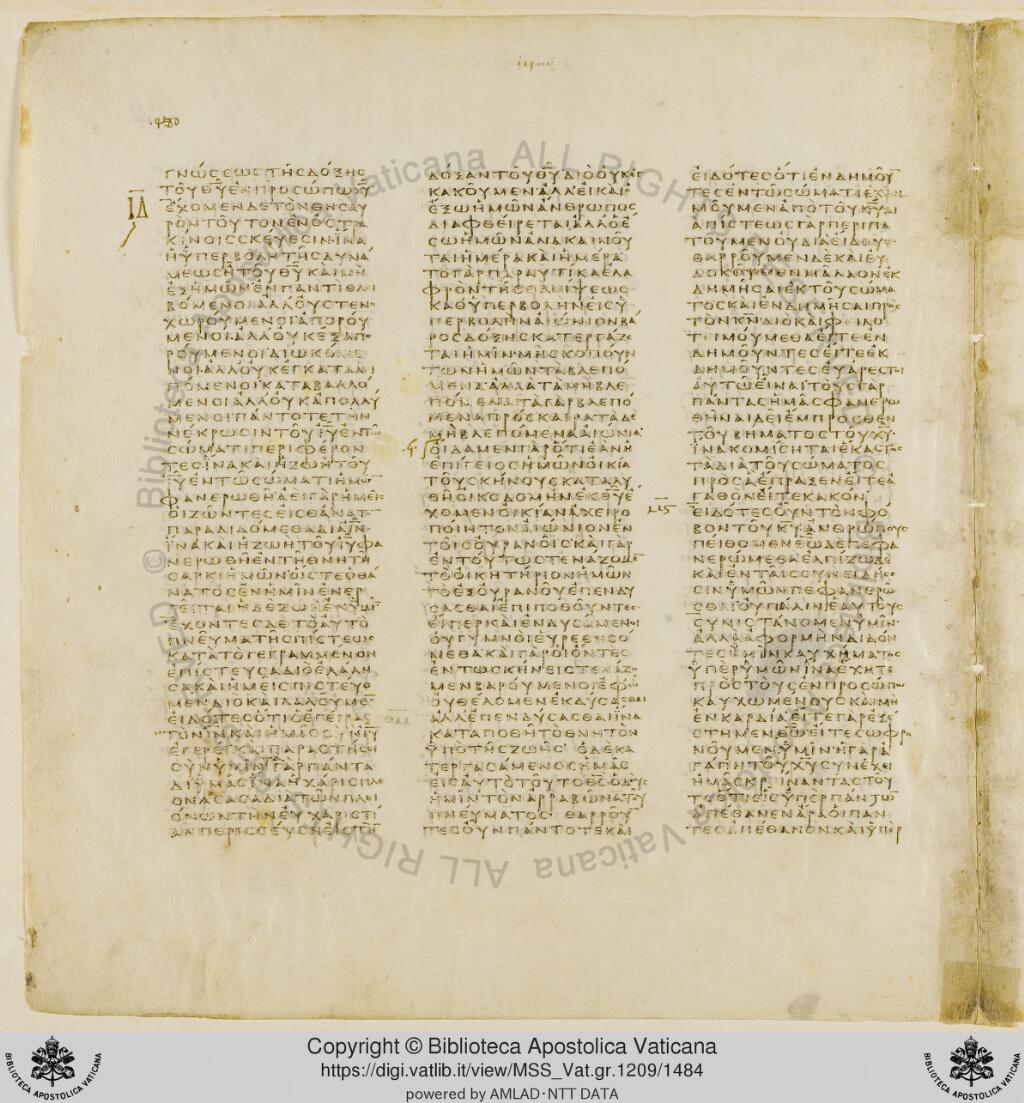 ΓΝΩϹΕΩϹΤΗϹΔΟΞΗϹ
ΤΟΥΘ̅Υ̅ΕΝΠΡΟϹΩΠΩΧ̅Υ̅
Ι̅Δ̅
ΕΧΟΜΕΝΔΕΤΟΝΘΗϹΑΥ
ΡΟΝΤΟΥΤΟΝΕΝΟϹΤΡΑ
ΚΙΝΟΙϹϹΚΕΥΕϹΙΝΙΝΑ
ΗΥΠΕΡΒΟΛΗΤΗϹΔΥΝΑ
ΜΕΩϹΗΤΟΥΘ̅Υ̅ΚΑΙΜΗ
ΕΞΗΜΩΝΕΝΠΑΝΤΙΘΛΙ
ΒΟΜΕΝΟΙΑΛΛΟΥϹΤΕΝ
ΧΩΡΟΥΜΕΝΟΙΑΠΟΡΟΥ
ΜΕΝΟΙΑΛΛΟΥΚΕΞΑΠΟ
ΡΟΥΜΕΝΟΙΔΙΩΚΟΜΕ
ΝΟΙΑΛΛΟΥΚΕΓΚΑΤΑΛΙ
ΠΟΜΕΝΟΙΚΑΤΑΒΑΛΛΟ
ΜΕΝΟΙΑΛΛΟΥΚΑΠΟΛΛΥ
ΜΕΝΟΙΠΑΝΤΟΤΕΤΗΝ
ΝΕΚΡΩϹΙΝΤΟΥΙ̅Υ̅ΕΝΤΩ
ϹΩΜΑΤΙΠΕΡΙΦΕΡΟΝ
ΤΕϹΙΝΑΚΑΙΗΖΩΗΤΟΥ
Ι̅Υ̅ΕΝΤΩϹΩΜΑΤΙΗΜΩ̅
ΦΑΝΕΡΩΘΗΑΕΙΓΑΡΗΜΕΙϹ
ΟΙΖΩΝΤΕϹΕΙϹΘΑΝΑΤΟ̅
ΠΑΡΑΔΙΔΟΜΕΘΑΔΙΑΙ̅Ν̅
ΙΝΑΚΑΙΗΖΩΗΤΟΥΙ̅Υ̅ΦΑ
ΝΕΡΩΘΗΕΝΤΗΘΝΗΤΗ
ϹΑΡΚΙΗΜΩΝΩϹΤΕΟΘΑ
ΝΑΤΟϹΕΝΗΜΙΝΕΝΕΡ
ΓΕΙΤΑΙΗΔΕΖΩΗΕΝΥΜΙ̅
ΕΧΟΝΤΕϹΔΕΤΟΑΥΤΟ
ΠΝΕΥΜΑΤΗϹΠΙϹΤΕΩϹ
ΚΑΤΑΤΟΓΕΓΡΑΜΜΕΝΟΝ
ΕΠΙϹΤΕΥϹΑΔΙΟΕΛΑΛΗ
ϹΑΚΑΙΗΜΕΙϹΠΙϹΤΕΥΟ
ΜΕΝΔΙΟΚΑΙΛΑΛΟΥΜΕ̅
ΕΙΔΟΤΕϹΟΤΙΟΕΓΕΙΡΑϹ
ΤΟΝΙ̅Ν̅ΚΑΙΗΜΑϹϹΥΝΙ̅Υ̅
ΕΓΕΡΕΙΚΑΙΠΑΡΑϹΤΗϹΕΙ
ϹΥΝΥΜΙΝΤΑΓΑΡΠΑΝΤΑ
ΔΙΥΜΑϹΙΝΑΗΧΑΡΙϹΠΛΕ
ΟΝΑϹΑϹΑΔΙΑΤΩΝΠΛΕΙ
ΟΝΩΝΤΗΝΕΥΧΑΡΙϹΤΙ
ΑΝΠΕΡΙϹϹΕΥϹΗΕΙϹΤΗ̅
ΔΟΞΑΝΤΟΥΘ̅Υ̅ΔΙΟΟΥΚΕΓ
ΚΑΚΟΥΜΕΝΑΛΛΕΙΚΑΙΟ
ΕΞΩΗΜΩΝΑΝΘΡΩΠΟϹ
ΔΙΑΦΘΕΙΡΕΤΑΙΑΛΛΟΕ
ϹΩΗΜΩΝΑΝΑΚΑΙΝΟΥ
ΤΑΙΗΜΕΡΑΚΑΙΗΜΕΡΑ
ΤΟΓΑΡΠΑΡΑΥΤΙΚΑΕΛΑ
ΦΡΟΝΤΗϹΘΛΙΨΕΩϹ
ΚΑΘΥΠΕΡΒΟΛΗΝΕΙϹΥ
ΠΕΡΒΟΛΗΝΑΙΩΝΙΟΝΒΑ
ΡΟϹΔΟΞΗϹΚΑΤΕΡΓΑΖΕ
ΤΑΙΗΜΙΝΜΗϹΚΟΠΟΥΝ
ΤΩΝΗΜΩΝΤΑΒΛΕΠΟ
ΜΕΝΑΑΛΛΑΤΑΜΗΒΛΕ
ΠΟΜΕΝΑΤΑΓΑΡΒΛΕΠΟ
ΜΕΝΑΠΡΟϹΚΑΙΡΑΤΑΔΕ
ΜΗΒΛΕΠΟΜΕΝΑΑΙΩΝΙΑ
ΟΙΔΑΜΕΝΓΑΡΟΤΙΕΑΝΗ
ΕΠΙΓΕΙΟϹΗΜΩΝΟΙΚΙΑ
ΤΟΥϹΚΗΝΟΥϹΚΑΤΑΛΥ
ΘΗΟΙΚΟΔΟΜΗΝΕΚΘ̅Υ̅Ε
ΧΟΜΕΝΟΙΚΙΑΝΑΧΕΙΡΟ
ΠΟΙΗΤΟΝΑΙΩΝΙΟΝΕΝ
ΤΟΙϹΟΥΡΑΝΟΙϹΚΑΙΓΑΡ
ΕΝΤΟΥΤΩϹΤΕΝΑΖΟΜΕ̅
ΤΟΟΙΚΗΤΗΡΙΟΝΗΜΩΝ
ΤΟΕΞΟΥΡΑΝΟΥΕΠΕΝΔΥ
ϹΑϹΘΑΙΕΠΙΠΟΘΟΥΝΤΕϹ
ΕΙΠΕΡΚΑΙΕΝΔΥϹΑΜΕΝΟΙ
ΟΥΓΥΜΝΟΙΕΥΡΕΘΗϹΟ
ΜΕΘΑΚΑΙΓΑΡΟΙΟΝΤΕϹ
ΕΝΤΩϹΚΗΝΕΙϹΤΕΝΑΖΟ
ΜΕΝΒΑΡΟΥΜΕΝΟΙΕΦΩ
ΟΥΘΕΛΟΜΕΝΕΚΔΥϹΑϹΘΑΙ
ΑΛΛΕΠΕΝΔΥϹΑϹΘΑΙΙΝΑ
ΚΑΤΑΠΟΘΗΤΟΘΝΗΤΟΝ
ΥΠΟΤΗϹΖΩΗϹ ΟΔΕΚΑ
ΤΕΡΓΑϹΑΜΕΝΟϹΗΜΑϹ
ΕΙϹΑΥΤΟΤΟΥΤΟΘ̅Ϲ̅ΟΔΟΥϹ
ΗΜΙΝΤΟΝΑΡΡΑΒΩΝΑΤΟΥ
ΠΝΕΥΜΑΤΟϹ ΘΑΡΡΟΥ̅
ΤΕϹΟΥΝΠΑΝΤΟΤΕΚΑΙ
ΕΙΔΟΤΕϹΟΤΙΕΝΔΗΜΟΥ̅
ΤΕϹΕΝΤΩϹΩΜΑΤΙΕΚΔΗ
ΜΟΥΜΕΝΑΠΟΤΟΥΚ̅Υ̅ΔΙ
ΑΠΙϹΤΕΩϹΓΑΡΠΕΡΙΠΑ
ΤΟΥΜΕΝΟΥΔΙΑΕΙΔΟΥϹ
ΘΑΡΡΟΥΜΕΝΔΕΚΑΙΕΥ
ΔΟΚΟΥΜΕΝΜΑΛΛΟΝΕΚ
ΔΗΜΗϹΑΙΕΚΤΟΥϹΩΜΑ
ΤΟϹΚΑΙΕΝΔΗΜΗϹΑΙΠΡΟϹ
ΤΟΝΚ̅Ν̅ΔΙΟΚΑΙΦΙΛΟ
ΤΙΜΟΥΜΕΘΑΕΙΤΕΕΝ
ΔΗΜΟΥΝΤΕϹΕΙΤΕΕΚ
ΔΗΜΟΥΝΤΕϹΕΥΑΡΕϹΤΟΙ
ΑΥΤΩΕΙΝΑΙΤΟΥϹΓΑΡ
ΠΑΝΤΑϹΗΜΑϹΦΑΝΕΡΩ
ΘΗΝΑΙΔΕΙΕΜΠΡΟϹΘΕΝ
ΤΟΥΒΗΜΑΤΟϹΤΟΥΧ̅Υ̅
ΙΝΑΚΟΜΙϹΗΤΑΙΕΚΑϹΤΟϹ
ΤΑΔΙΑΤΟΥϹΩΜΑΤΟϹ
ΠΡΟϹΑΕΠΡΑΞΕΝΕΙΤΕΑ
ΓΑΘΟΝΕΙΤΕΚΑΚΟΝ
ΕΙΔΟΤΕϹΟΥΝΤΟΝΦΟ
ΒΟΝΤΟΥΚ̅Υ̅ΑΝΘΡΩΠΟΥϹ
ΠΕΙΘΟΜΕΝΘΕΩΔΕΠΕΦΑ
ΝΕΡΩΜΕΘΑΕΛΠΙΖΩΔΕ
ΚΑΙΕΝΤΑΙϹϹΥΝΕΙΔΗϹΕ
ϹΙΝΥΜΩΝΠΕΦΑΝΕΡΩ
ϹΘΑΙΟΥΠΑΛΙΝΕΑΥΤΟΥϹ
ϹΥΝΙϹΤΑΝΟΜΕΝΥΜΙΝ
ΑΛΛΑΑΦΟΡΜΗΝΔΙΔΟΝ
ΤΕϹΥΜΙΝΚΑΥΧΗΜΑΤΟϹ
ΥΠΕΡΥΜΩΝΙΝΑΕΧΗΤΕ
ΠΡΟϹΤΟΥϹΕΝΠΡΟϹΩΠΩ
ΚΑΥΧΩΜΕΝΟΥϹΚΑΙΜΗ
ΕΝΚΑΡΔΙΑΕΙΤΕΓΑΡΕΞΕ
ϹΤΗΜΕΝΘ̅Ω̅ΕΙΤΕϹΩΦΡΟ
ΝΟΥΜΕΝΥΜΙΝΗΓΑΡΑ
ΓΑΠΗΤΟΥΧ̅Υ̅ϹΥΝΕΧΕΙ
ΗΜΑϹΚΡΙΝΑΝΤΑϹΤΟΥ
ΤΟΟΤΙΕΙϹΥΠΕΡΠΑΝΤΩ̅
ΑΠΕΘΑΝΕΝΑΡΑΟΙΠΑΝ
ΤΕϹΑΠΕΘΑΝΟΝΚΑΙΥΠΕΡ
Copyright © Biblioteca Apostolica Vaticana
https://digi.vatlib.it/view/MSS_Vat.gr.1209/1484
powered by AMLAD·NTT DATA
BIBLIOTECA APOSTOLICA VATICANA
BIBLIOTECA APOSTOLICA VATICANA